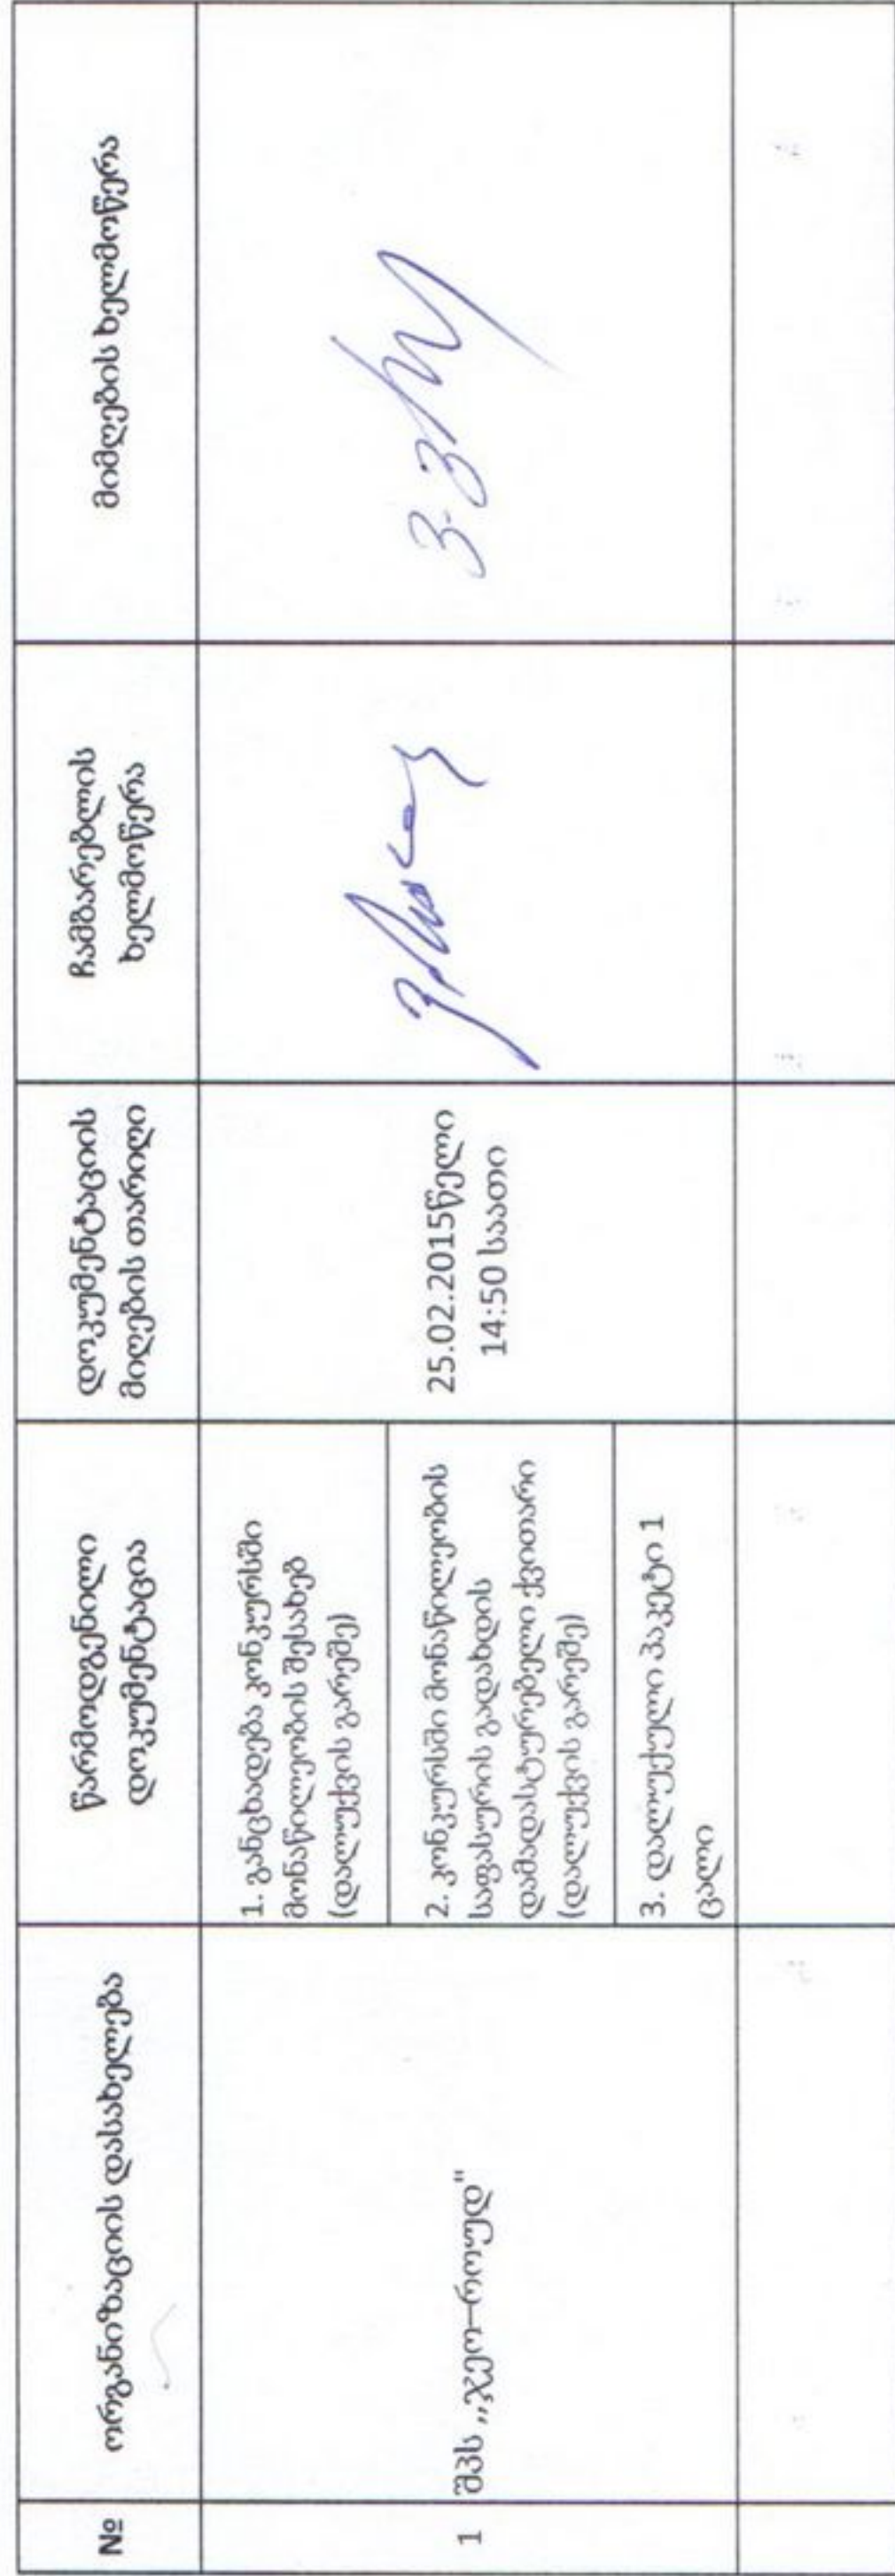 №
ორგანიზაციის დასახელება
წარმოდგენილი
დოკუმენტაცია
დოკუმენტაციის
მიღების თარიღი
ჩამბარებლის
ხელმოწერა
მიმღების ხელმოწერა
1
შპს ,,ჯეო–როუდ"
1. განცხადება კონკურსში
მონაწილეობის შესახებ
(დალუქვის გარეშე)
2. კონკურსში მონაწილეობის
საფასურის გადახდის
დამადასტურებელი ქვითარი
(დალუქვის გარეშე)
3. დალუქული პაკეტი 1
ცალი
25.02.2015წელი
14:50 საათი